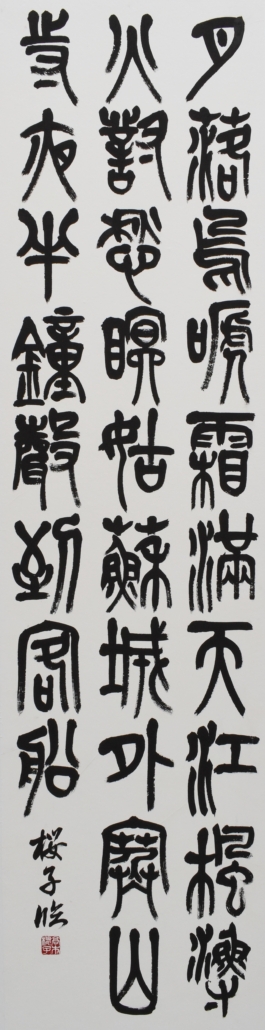 月落烏嗁霜滿天江楓漁
火對愁瞑姑蘇城外寒山
寺夜半鐘聲到客船
桜子臨